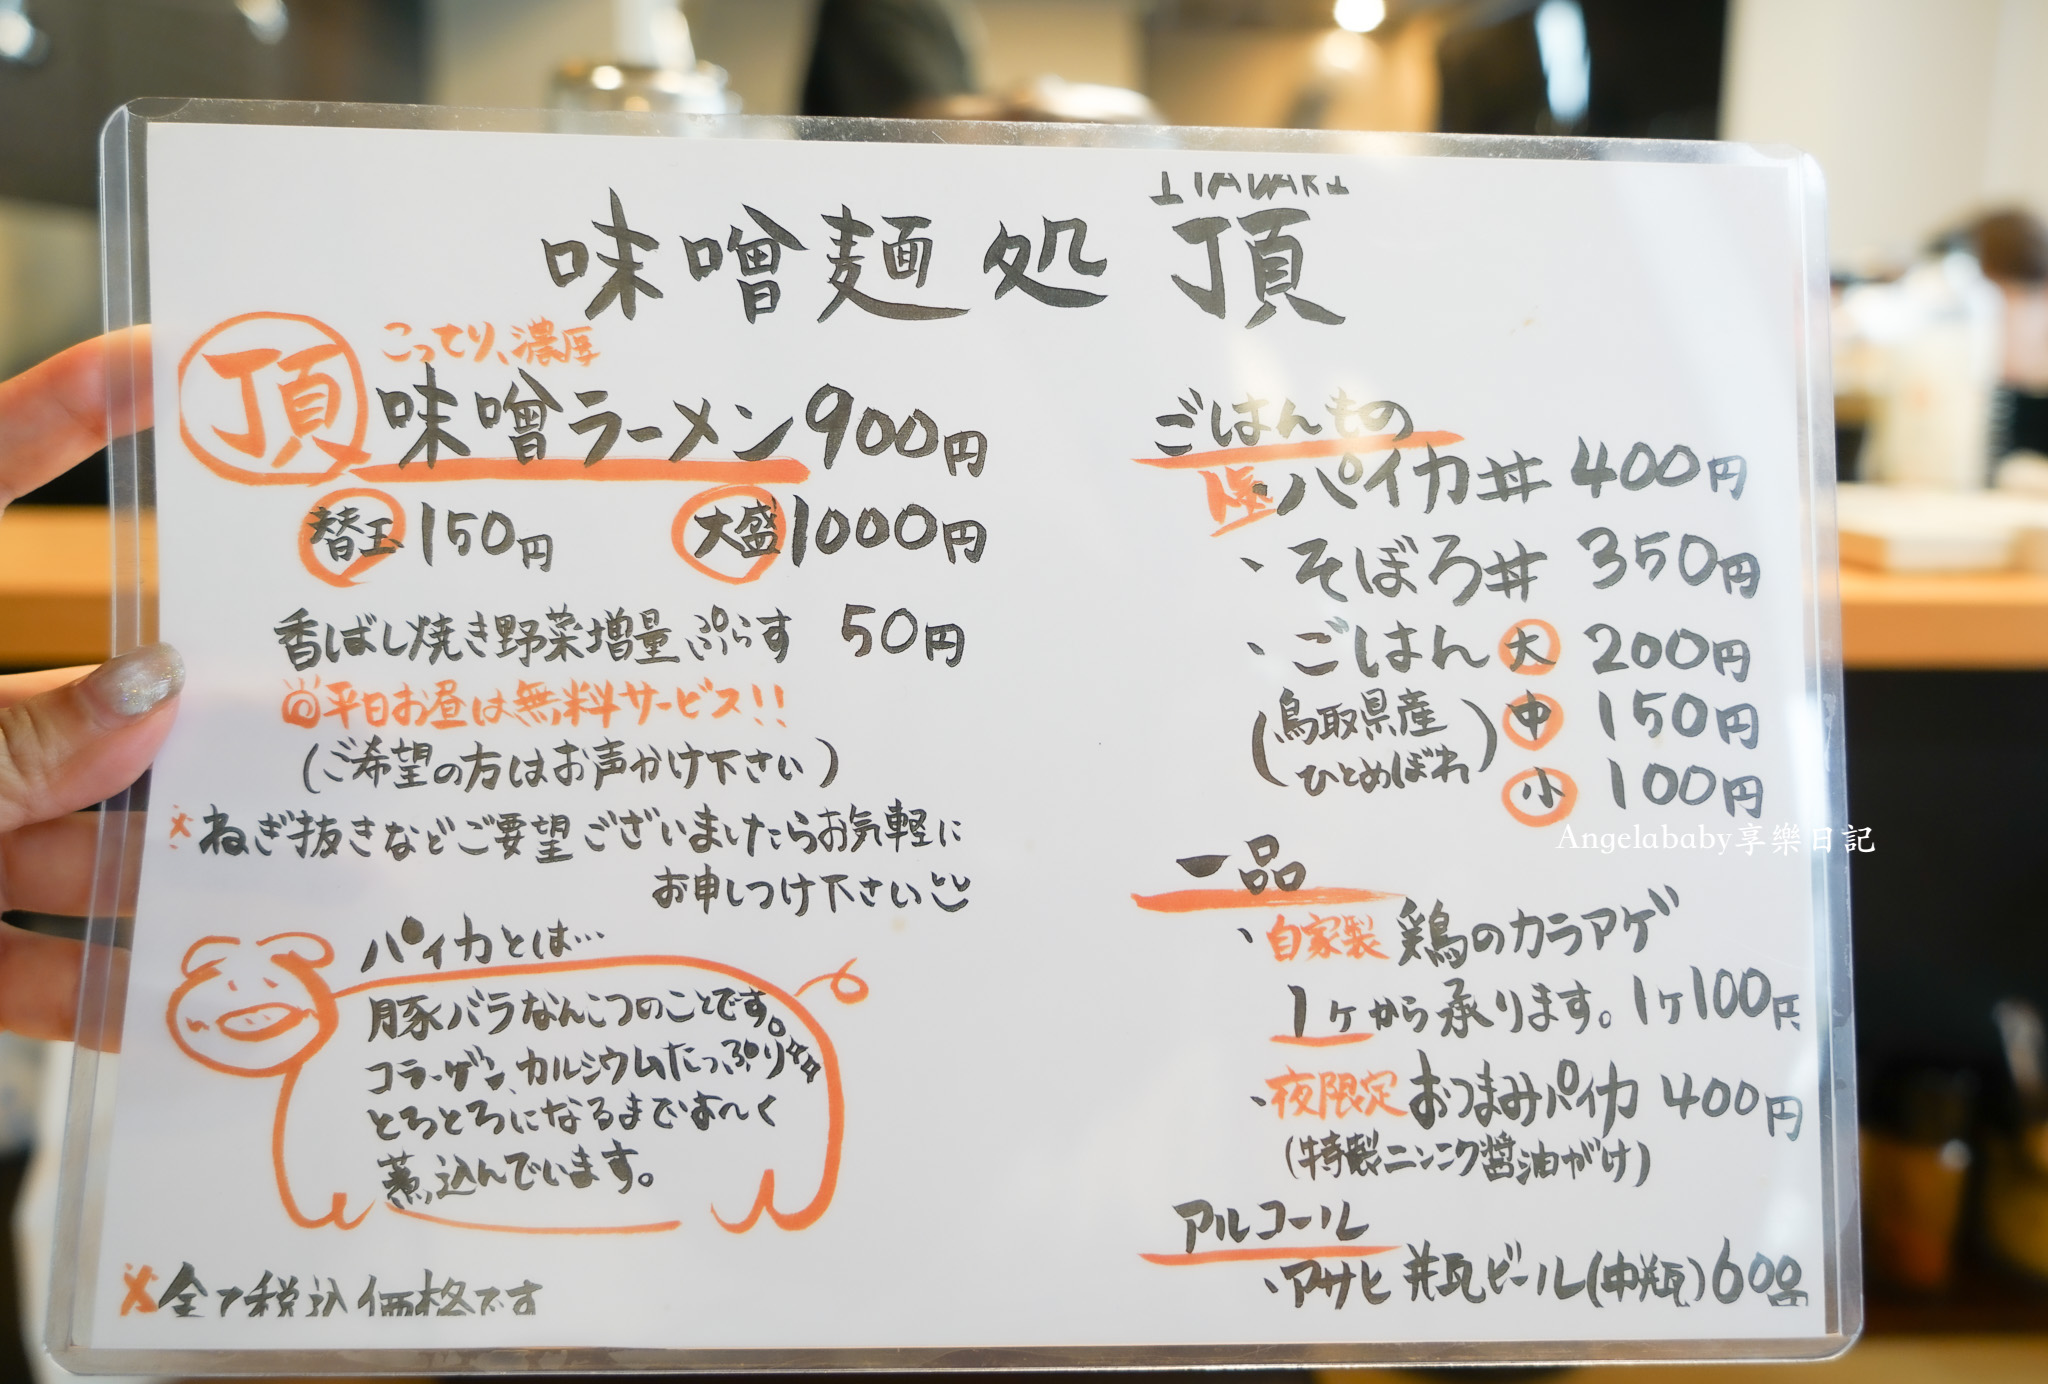 ITADAKI
味噌麺処 頂
頂 こってり、濃厚
味噌ラーメン 900円
替玉 150円 大盛 1000円
香ばし焼き野菜増量ぷらす 50円
平日お昼は無料サービス!!
(ご希望の方はお声かけ下さい)
※ねぎ抜きなどご要望ございましたらお気軽に
お申しつけ下さい
パイカとは…
豚バラなんこつのことです。
コラーゲン、カルシウムたっぷり
とろとろになるまでなが~く
煮込んでいます。
※全て税込価格です
ごはんもの
・パイカ丼 400円
・そぼろ丼 350円
・ごはん 大 200円
(鳥取県産 ひとめぼれ) 中 150円
小 100円
一品
・自家製 鶏のカラアゲ
1ヶから承ります。1ヶ100円
・夜限定 おつまみパイカ 400円
(特製ニンニク醤油がけ)
アルコール
・アサヒ 瓶ビール(中瓶) 600円
Angelababy享樂日記